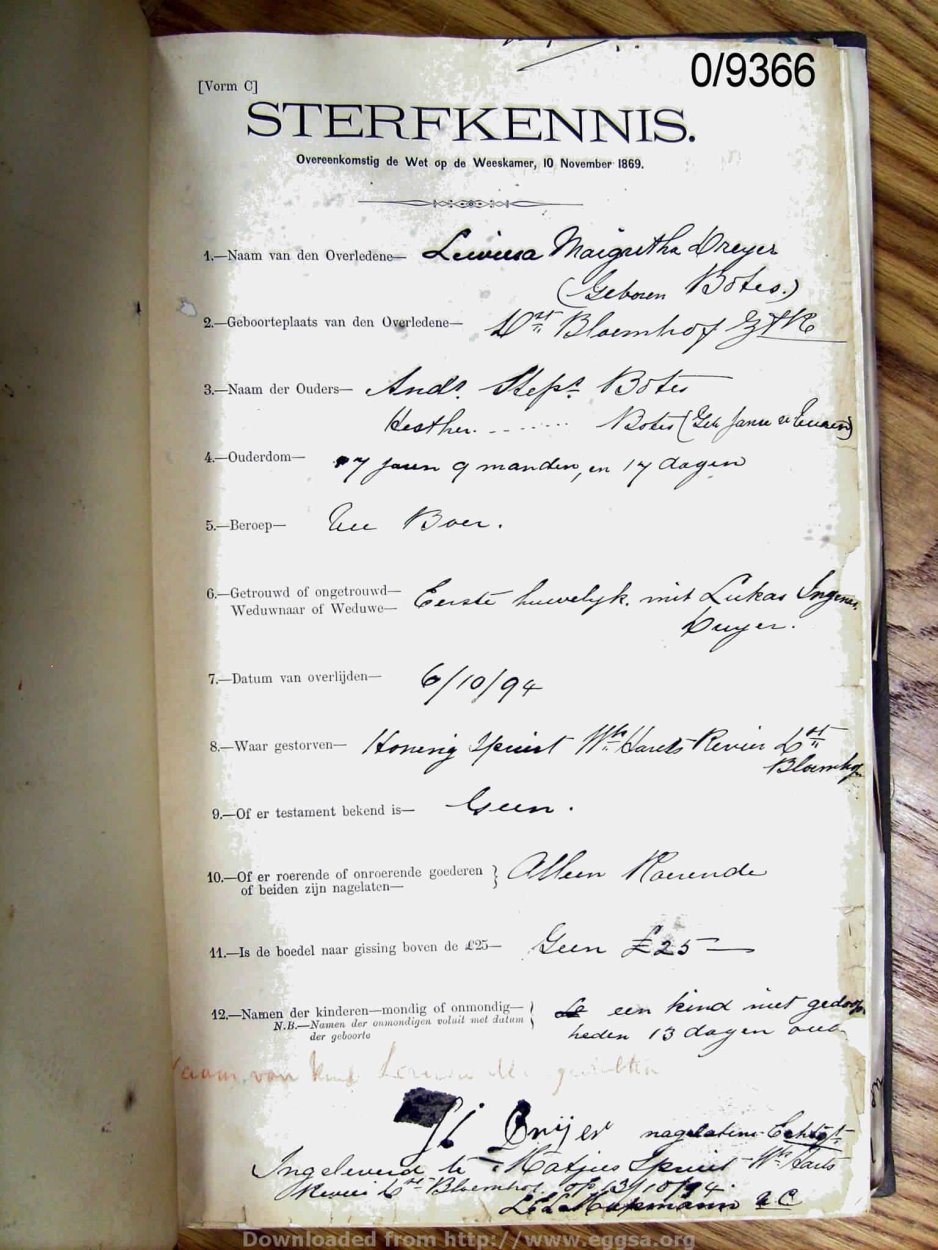 0/9366
[Vorm C]
STERFKENNIS.
Overeenkomstig de Wet op de Weeskamer, 10 November 1869.
1.—Naam van den Overledene— Dreyer
(Geboren Botes.)
2.—Geboorteplaats van den Overledene— Dst Bloemhof ZAR
3.—Naam der Ouders— Andr. Steps. Botes
Hesther ........ Botes (Geb
4.—Ouderdom— 17 jaren 9 manden, en 17 dagen
5.—Beroep— Boer.
6.—Getrouwd of ongetrouwd—
Weduwnaar of Weduwe— Eerste huwelyk. met Lukas
Dreyer.
7.—Datum van overlijden— 6/10/94
8.—Waar gestorven— Honing Spruit Wk Harts Revier Dst
Bloemhof
9.—Of er testament bekend is— Geen.
10.—Of er roerende of onroerende goederen
of beiden zijn nagelaten— } Alleen Roerende
11.—Is de boedel naar gissing boven de £25— Geen £25—
12.—Namen der kinderen—mondig of onmondig— een kind niet gedoop
N.B.—Namen der onmondigen voluit met datum
der geboorte } heden 13 dagen oud
Naam van kind
Drijer nagelatene Echtgt
Ingeleverd te Matjies Spruit Wk Harts
Revier Dst Bloemhof op 13/10/94.
Downloaded from http://www.eggsa.org